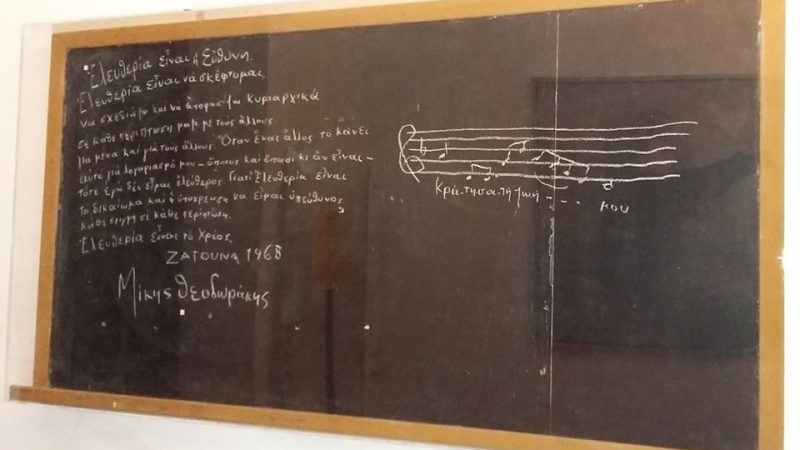 Ἐλευθερία εἶναι ἡ Εὐθύνη.
Ἐλευθερία εἶναι νὰ σκέφτομαι,
νὰ σχεδιάζω καὶ νὰ ἀποφασίζω κυριαρχικὰ
σὲ κάθε περίπτωση μαζὶ μὲ τοὺς ἄλλους
γιὰ μένα καὶ γιὰ τοὺς ἄλλους. Ὅταν ἕνας ἄλλος τὸ κάνει
αὐτὸ γιὰ λογαριασμό μου – ὅποιος καὶ ὅποιοι κι ἂν εἶναι –
τότε ἐγὼ δὲν εἶμαι ἐλεύθερος. Γιατὶ Ἐλευθερία εἶναι
τὸ δικαίωμα καὶ ἡ ὑποχρέωση νὰ εἶμαι ὑπεύθυνος
κάθε στιγμὴ σὲ κάθε περίπτωση.
Ἐλευθερία εἶναι τὸ Χρέος.
ΖΑΤΟΥΝΑ 1968
Μίκης Θεοδωράκης
Κρά-τησα-τὴ ζωή - - - - μου